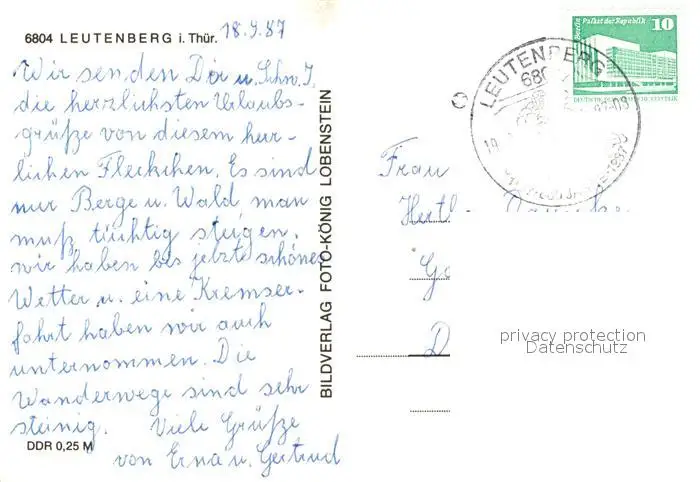 6804 LEUTENBERG i. Thür.
18.9.87
Wir senden Dir u. Schw. J.
die herzlichsten Urlaubs-
grüße von diesem herr-
lichen Fleckchen. Es sind
nur Berge u. Wald man
muß tüchtig steigen.
wir haben bis jetzt schönes
Wetter u. eine Kremser-
fahrt haben wir auch
unternommen. Die
Wanderwege sind sehr
steinig. Viele Grüße
von Erna u. Gertrud
DDR 0,25 M
BILDVERLAG FOTO-KÖNIG LOBENSTEIN
LEUTENBERG
Berlin Palast der Republik
10
DEUTSCHE REPUBLIK
Frau
privacy protection
Datenschutz